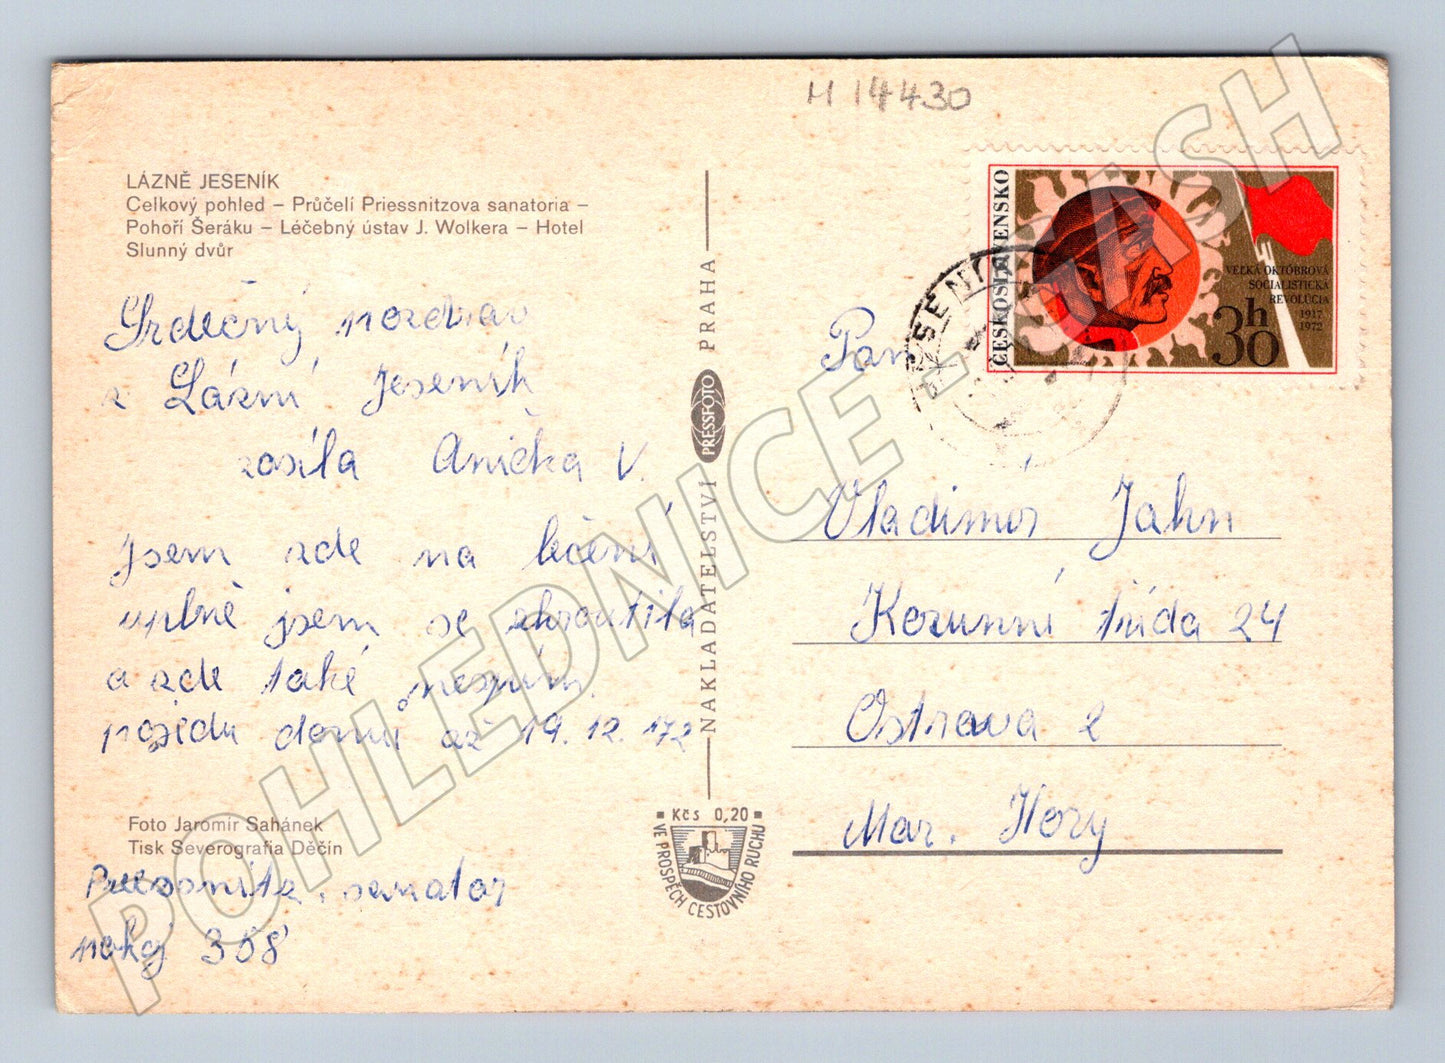 M 14430
LÁZNĚ JESENÍK
Celkový pohled – Průčelí Priessnitzova sanatoria –
Pohoří Šeráku – Léčebný ústav J. Wolkera – Hotel
Slunný dvůr
Srdečný pozdrav
z Lázní Jeseník
zasíla Anička V.
Jsem zde na léčení
uplně jsem se zhroutila
a zde také nespím.
pojedu domů až 19. 12. 1972
Foto Jaromír Sahánek
Tisk Severografia Děčín
sanator
358
NAKLADATELSTVÍ PRESSFOTO PRAHA
Kčs 0,20
VE PROSPĚCH CESTOVNÍHO RUCHU
ČESKOSLOVENSKO
VEĽKÁ OKTÓBROVÁ
SOCIALISTICKÁ
REVOLÚCIA
1917
1972
30h
JESENÍK
Pan
Vladimír Jahn
Korunní třída 24
Ostrava 2
Mar. Hory
POHLEDNICE - CASH